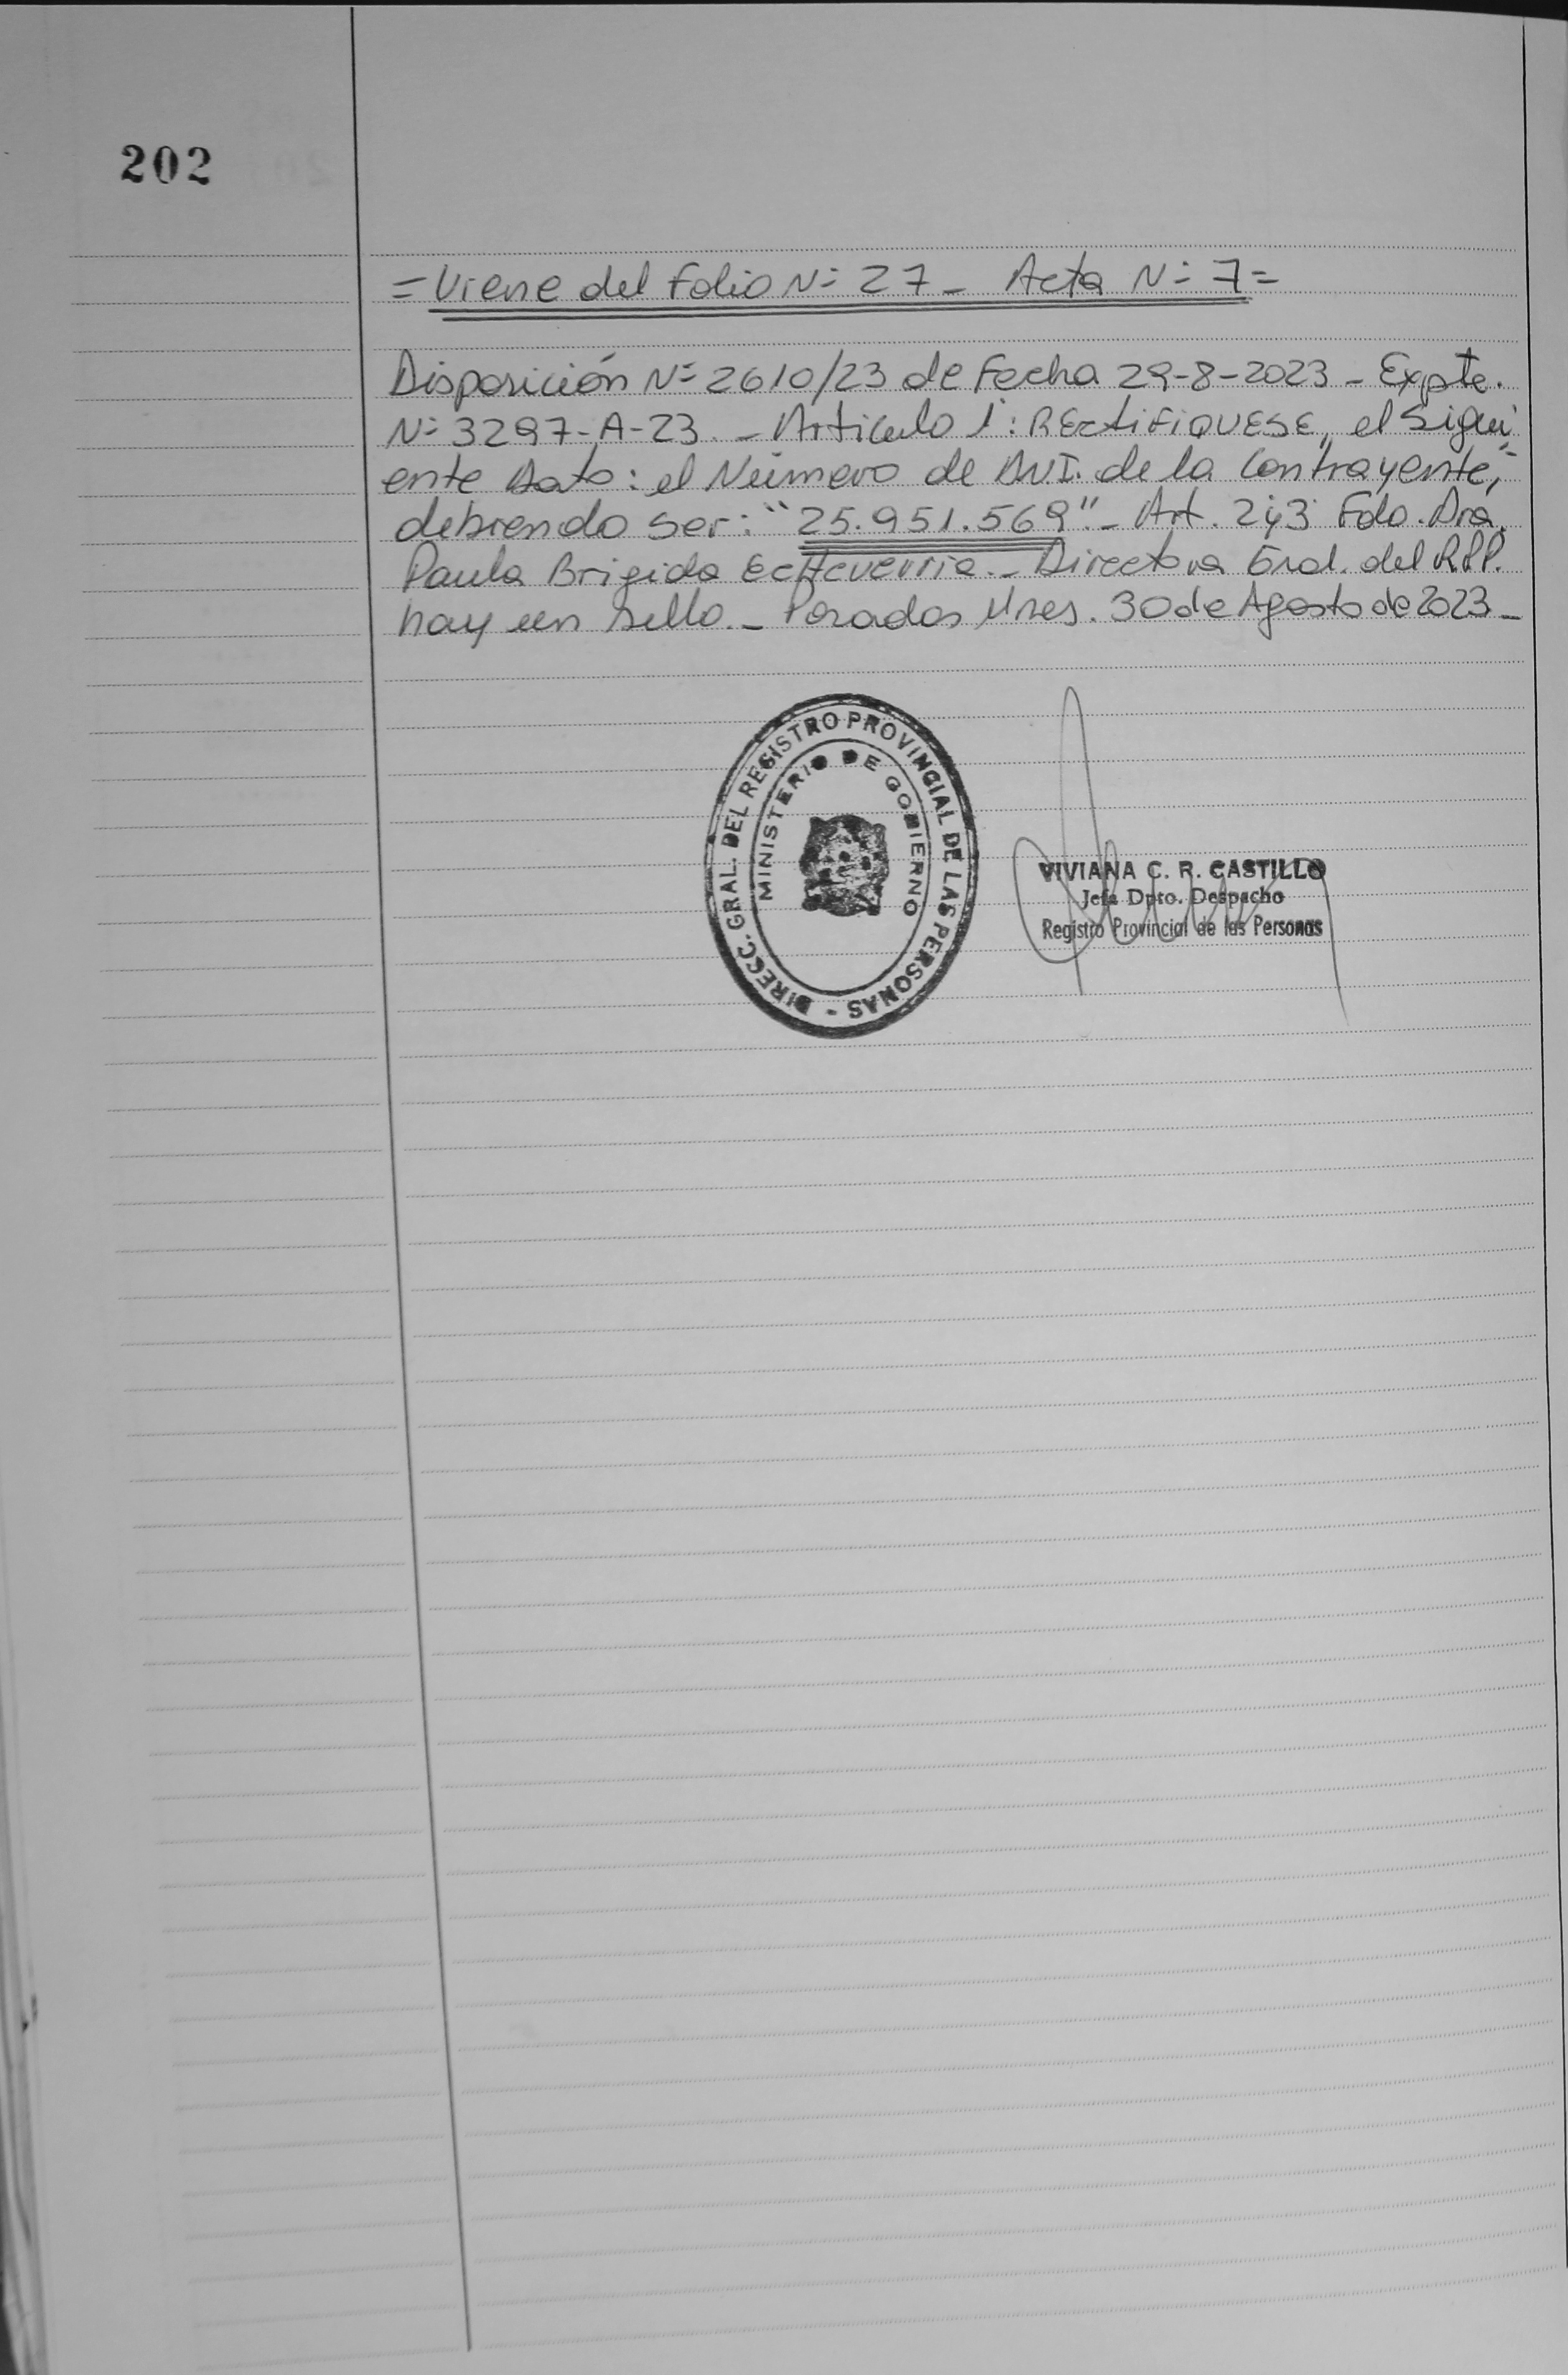 202
= Viene del Folio N= 27 - Acta N= 7 =
Disposición N= 2610/23 de Fecha 29-8-2023 - Expte.
N= 3297-A-23. - Articulo 1°: RECTIFIQUESE, el Sigui
ente Dato: el Número de D.N.I. de la Contrayente,
debiendo ser: "25.951.569" - Art. 2y3 Fdo. Dra.
Paula Brigida Echeverria. - Directora Gral. del R.P.P.
hay un sello. - Posadas Mnes. 30 de Agosto de 2023 -
DIRECC. GRAL. DEL REGISTRO PROVINCIAL DE LAS PERSONAS -
MINISTERIO DE GOBIERNO
VIVIANA C. R. CASTILLO
Jefa Dpto. Despacho
Registro Provincial de las Personas